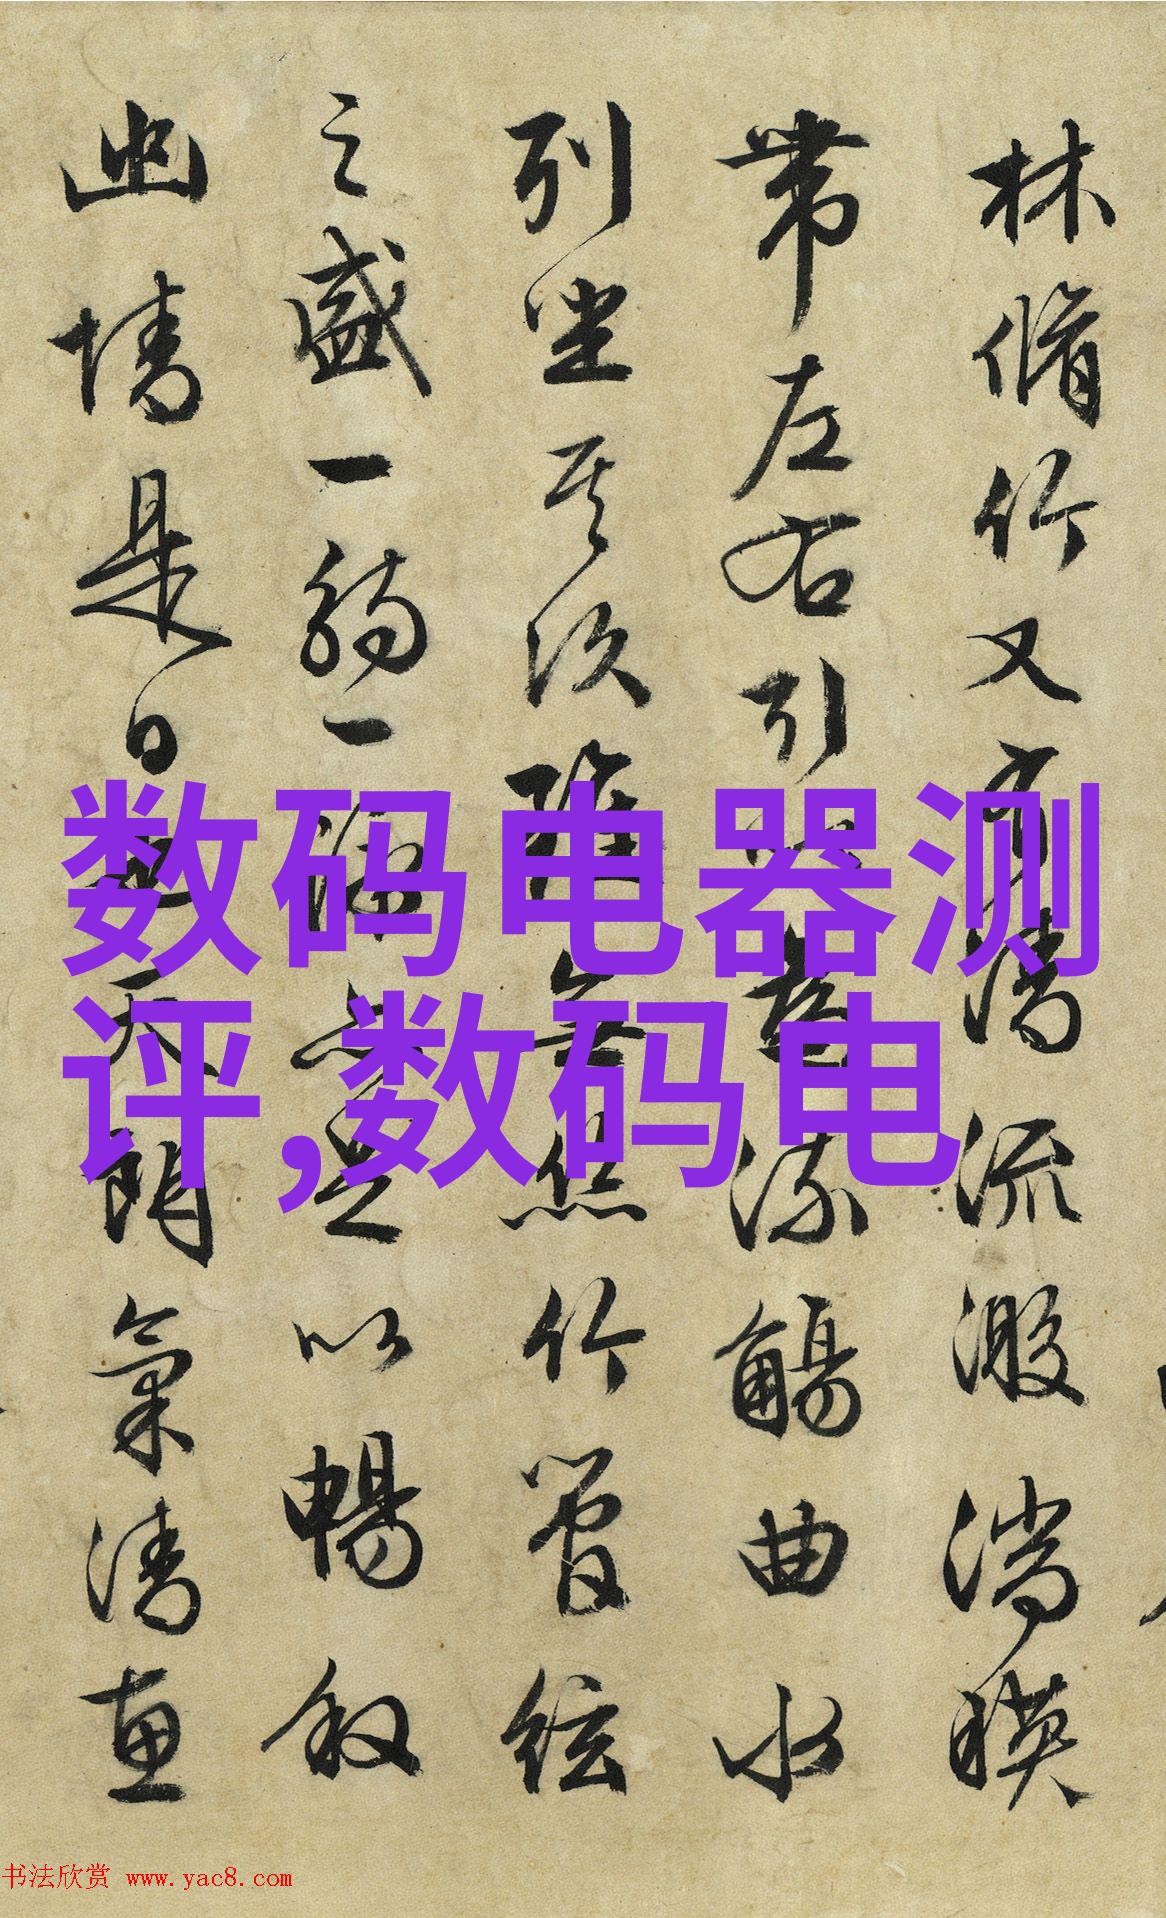 林脩竹又有清流激湍暎
帶左右引以為流觴曲水
列坐其次雖無絲竹管絃
之盛一觴一詠亦足以暢叙
幽情是日也天朗氣清惠
数码电器测
评,数码电
书法欣赏 www.yac8.com